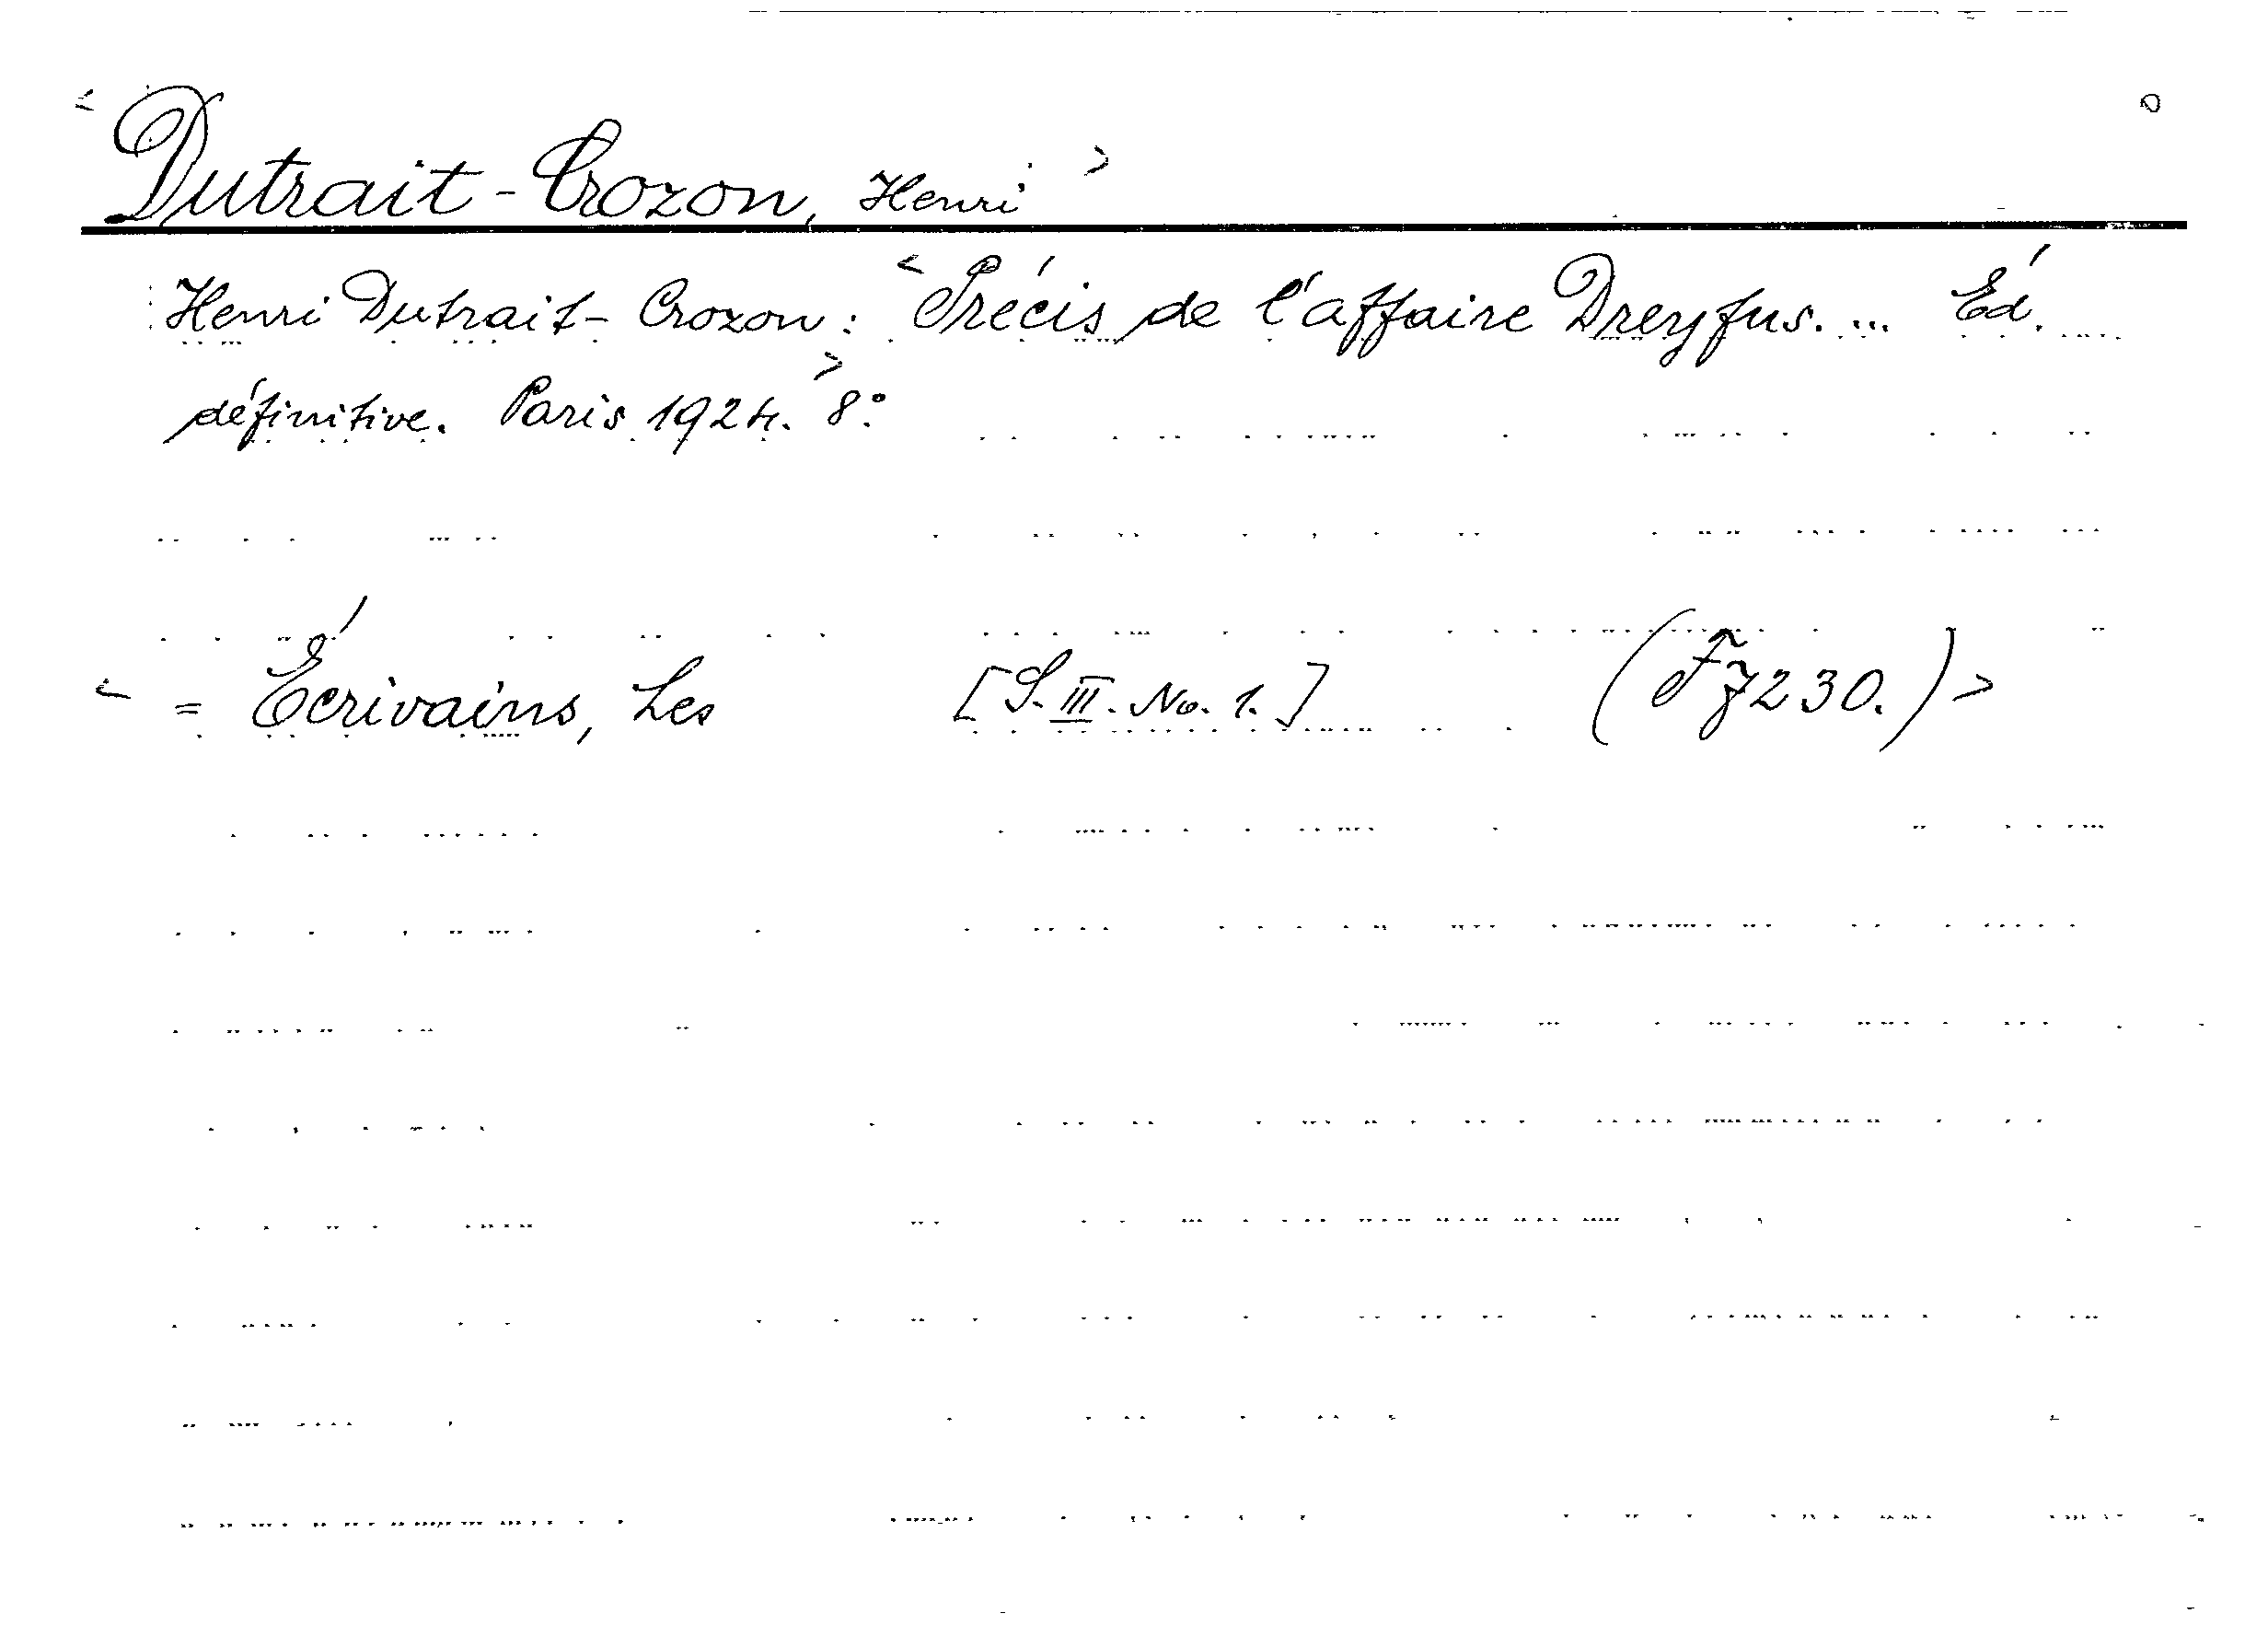 < Dutrait-Crozon, Henri >
Henri Dutrait-Crozon: < Précis de l'affaire Dreyfus. ... Éd.
définitive. Paris 1924. > 8°.
< = Écrivains, Les [S. III. No. 1.] (Fz 230.) >